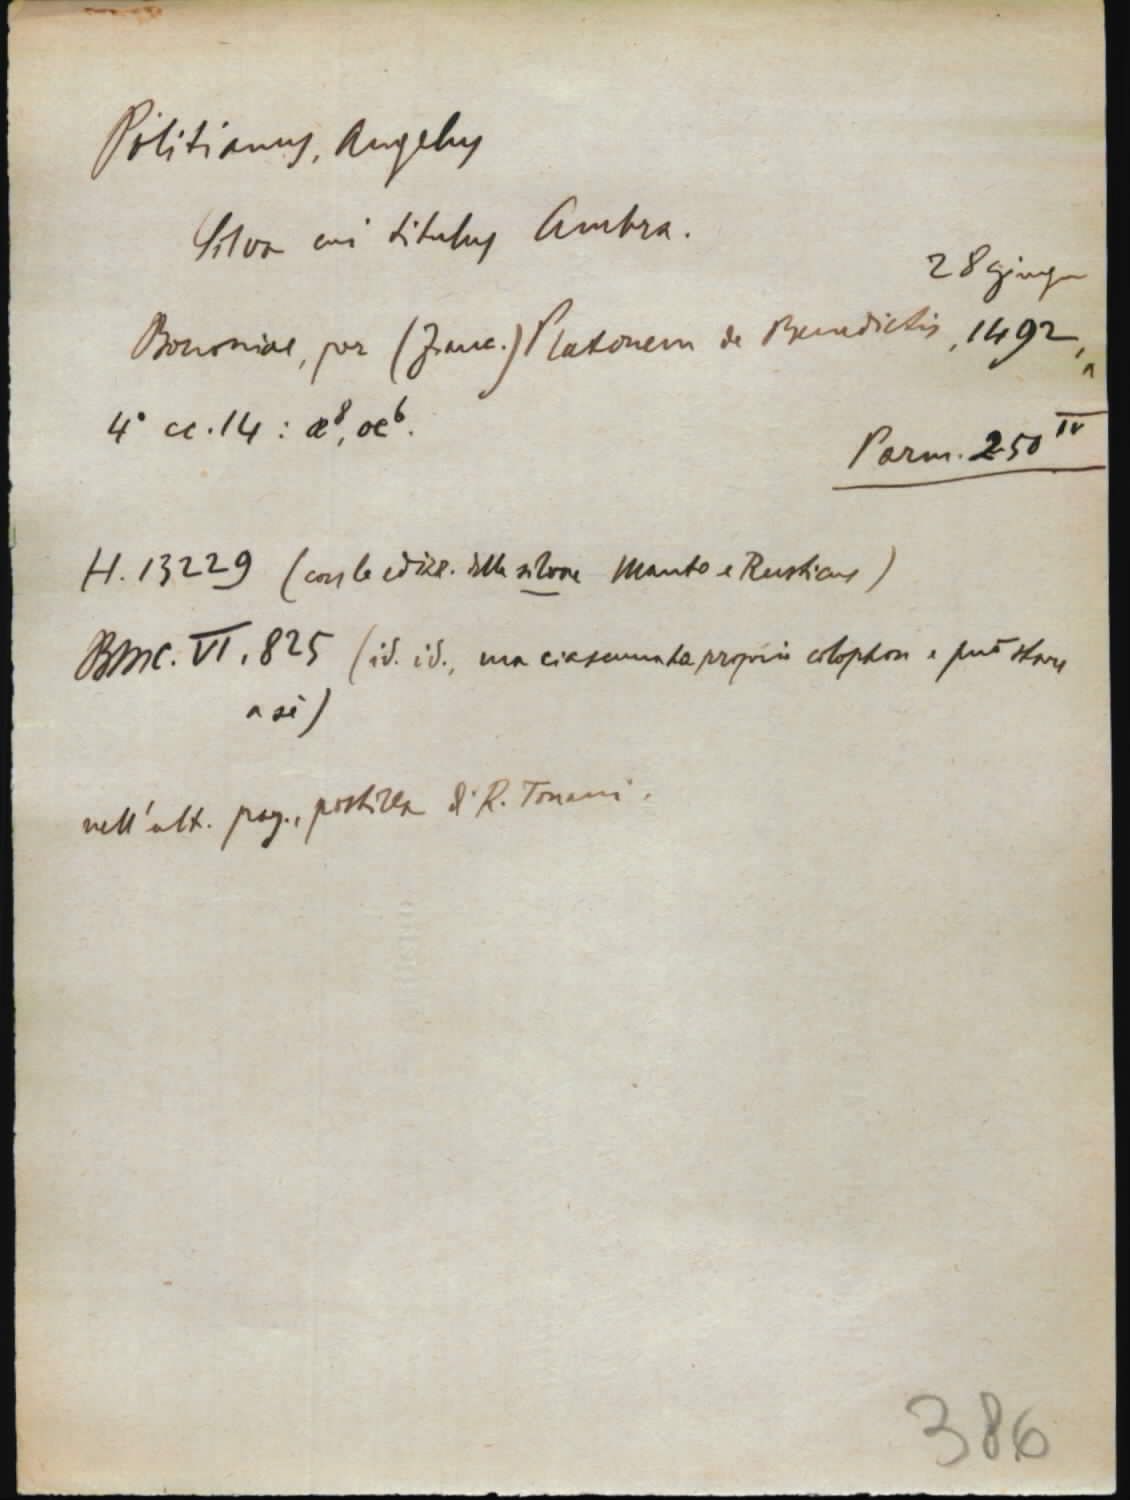 Politianus, Angelus
Silva cui titulus Ambra.
28 giugn
Bononiae, per (Franc.) Platonem de Benedictis, 1492,
4° cc. 14 : æ⁸, œ⁶.
Parm. 250 IV
H. 13229 (con le ediz. delle silvae Manto e Rusticus)
BMC. VI, 825 (id. id., ma ciascuna ha proprio colophon e può stare
a sè)
nell'ult. pag., postilla di R. Tonani.
386